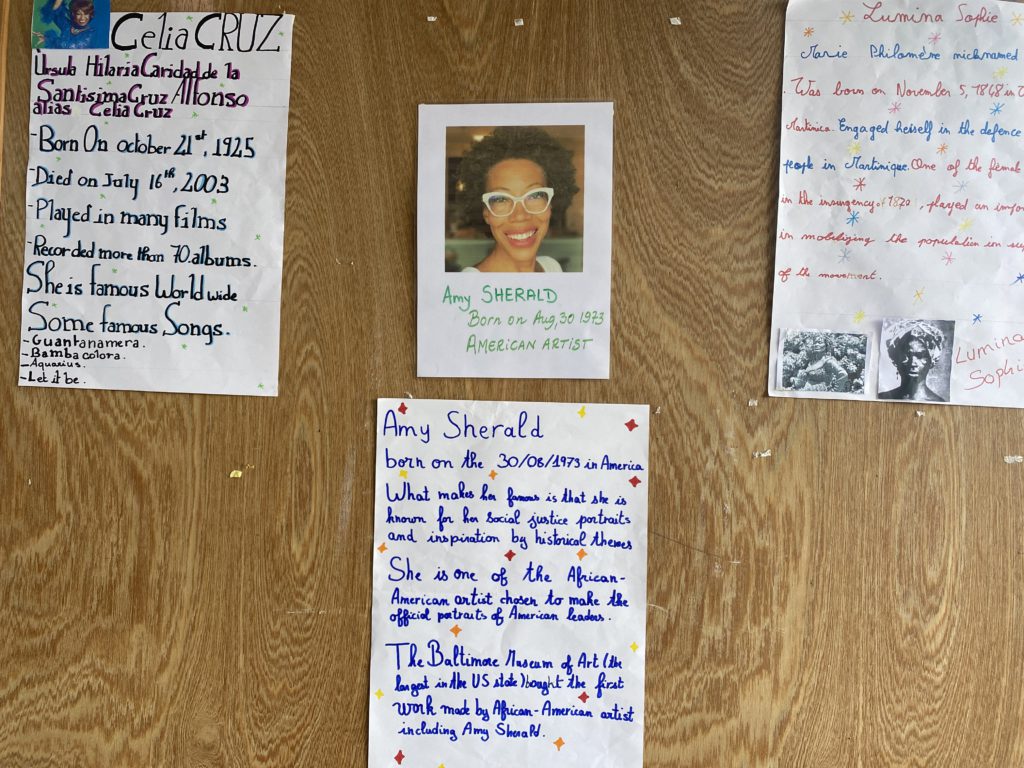 Celia CRUZ
Ùrsula Hilaria Caridad de la
Santisima Cruz Alfonso
alias Celia Cruz
-Born On october 21st, 1925
-Died on July 16th, 2003
-Played in many films
-Recorded more than 70 albums.
She is famous World wide
Some famous Songs.
-Guantanamera.
-Bamba colora.
-Aquarius.
-Let it be.
Amy SHERALD
Born on Aug, 30 1973
AMERICAN ARTIST
Amy Sherald
born on the 30/08/1973 in America
What makes her famous is that she is
known for her social justice portraits
and inspiration by historical themes
She is one of the African-
American artist chosen to make the
official portraits of American leaders.
The Baltimore Museum of Art (the
largest in the US state) bought the first
work made by African-American artist
including Amy Sherald.
Lumina Sophie
Marie Philomène nicknamed
Was born on November 5, 1848 in
Martinica. Engaged herself in the defence
people in Martinique. One of the female
in the insurgency of 1870, played an
in mobilizing the population in
of the movement.
Lumina